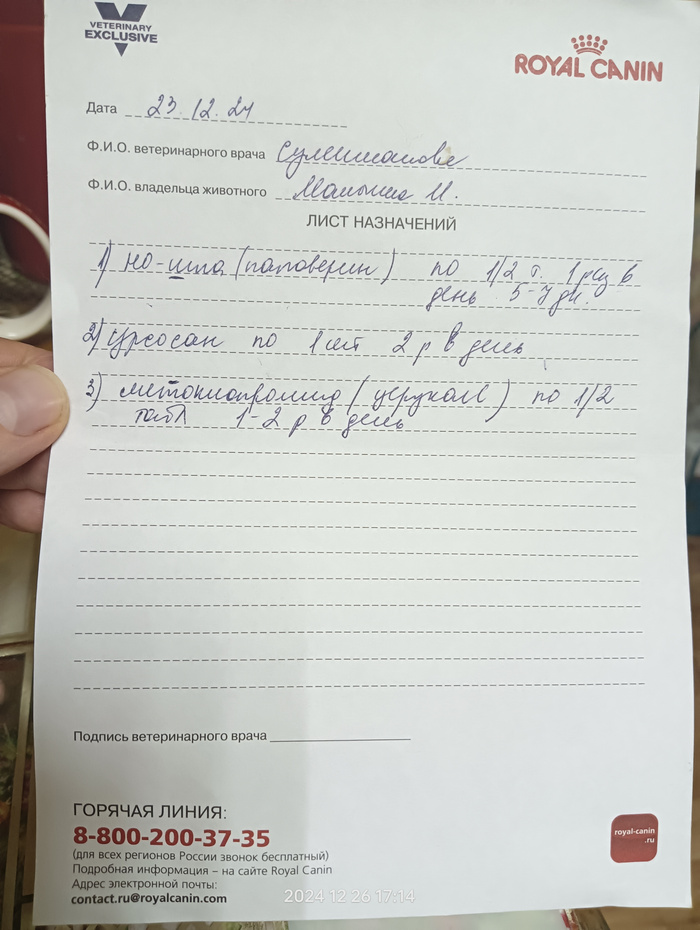 VETERINARY
EXCLUSIVE
ROYAL CANIN
Дата 23.12.24
Ф.И.О. ветеринарного врача
Ф.И.О. владельца животного Мамышева И.
ЛИСТ НАЗНАЧЕНИЙ
1) но-шпа (папаверин) по 1/2 т. 1 раз в
день 5-7 дн.
2) урсосан по 1 шт 2 р в день
3) метоклопромид (церукал) по 1/2
табл 1-2 р в день
Подпись ветеринарного врача
ГОРЯЧАЯ ЛИНИЯ:
8-800-200-37-35
(для всех регионов России звонок бесплатный)
Подробная информация – на сайте Royal Canin
Адрес электронной почты:
contact.ru@royalcanin.com
royal-canin
.ru
2024 12 26 17:14